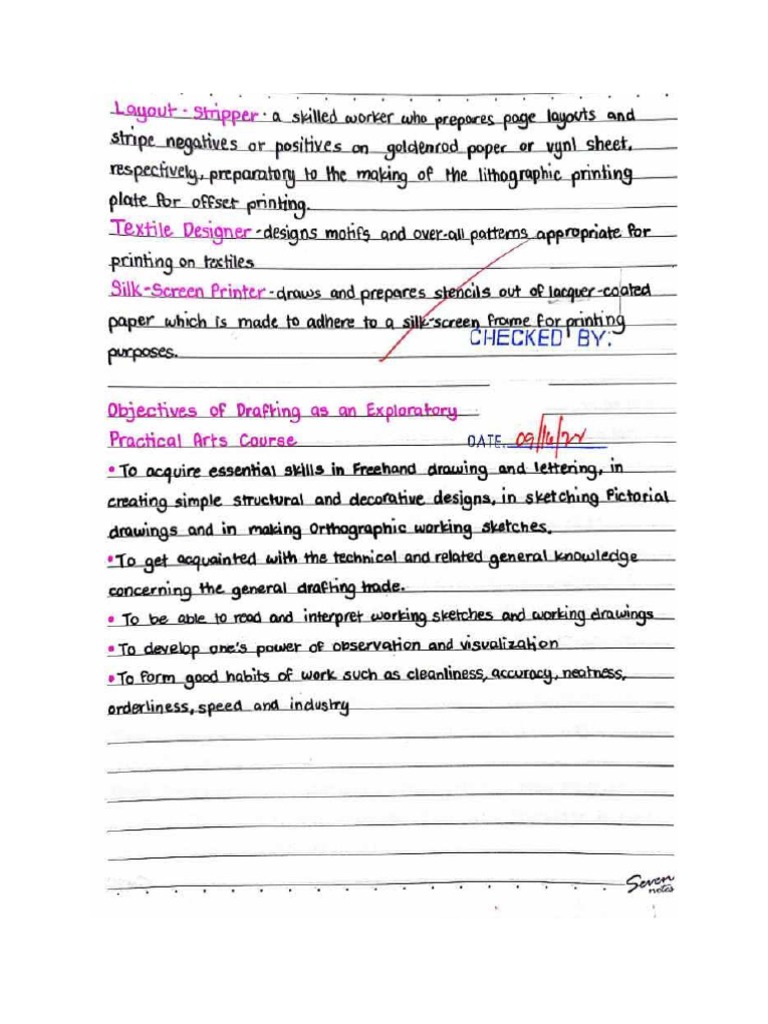 Layout - Stripper - a skilled worker who prepares page layouts and
stripe negatives or positives on goldenrod paper or vynl sheet,
respectively, preparatory to the making of the lithographic printing
plate for offset printing.
Textile Designer - designs motifs and over-all patterns appropriate for
printing on textiles
Silk-Screen Printer - draws and prepares stencils out of lacquer-coated
paper which is made to adhere to a silk-screen frame for printing
purposes.
CHECKED BY:
Objectives of Drafting as an Exploratory
Practical Arts Course
DATE. 09/16/22
• To acquire essential skills in Freehand drawing and lettering, in
creating simple structural and decorative designs, in sketching Pictorial
drawings and in making Orthographic working sketches.
• To get acquainted with the technical and related general knowledge
concerning the general drafting trade.
• To be able to read and interpret working sketches and working drawings
• To develop one's power of observation and visualization
• To form good habits of work such as cleanliness, accuracy, neatness,
orderliness, speed and industry
Seven
notes